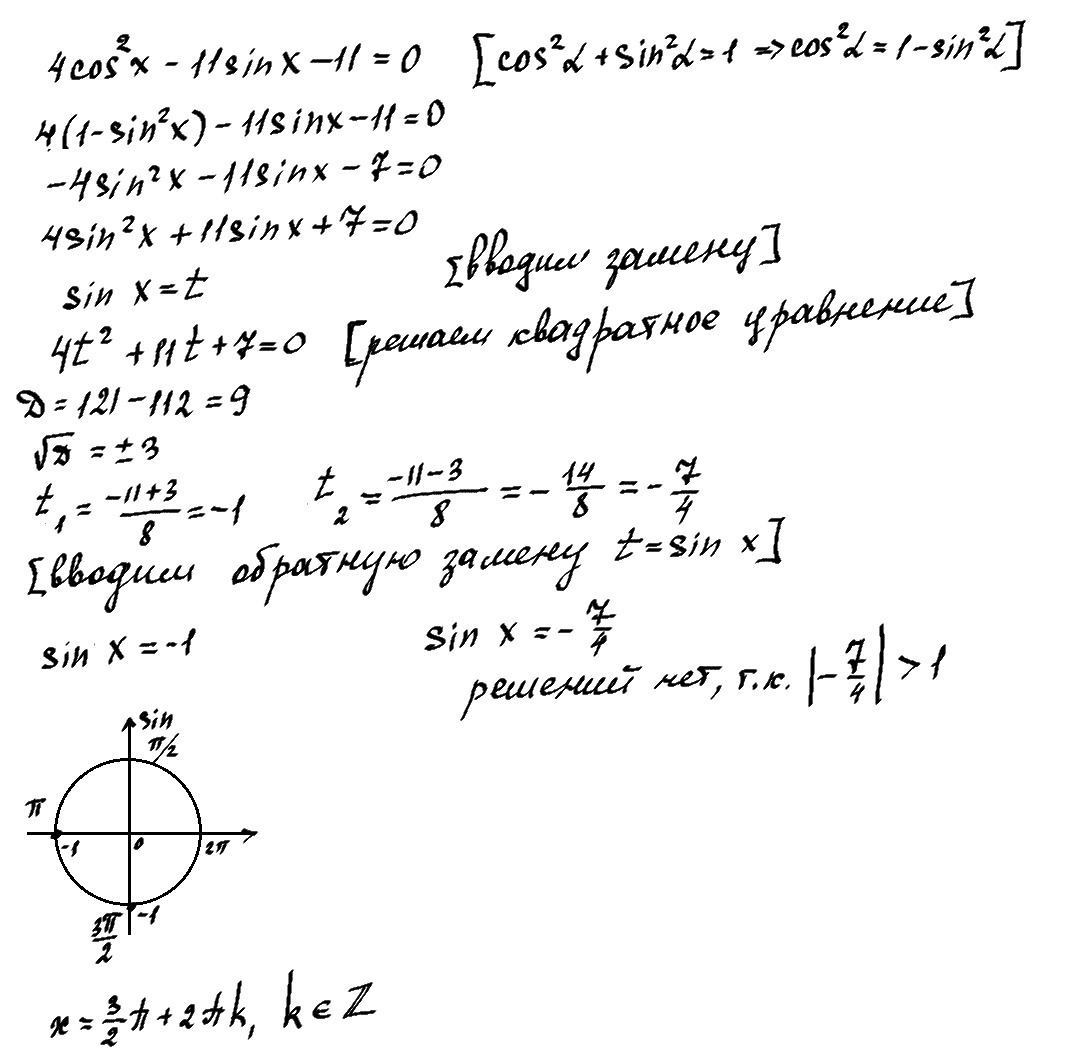 4cos²x - 11sinx - 11 = 0 [cos²α + sin²α = 1 => cos²α = 1 - sin²α]
4(1 - sin²x) - 11sinx - 11 = 0
-4sin²x - 11sinx - 7 = 0
4sin²x + 11sinx + 7 = 0
sin x = t [вводим замену]
4t² + 11t + 7 = 0 [решаем квадратное уравнение]
D = 121 - 112 = 9
√D = ±3
t₁ = (-11+3)/8 = -1 t₂ = (-11-3)/8 = -14/8 = -7/4
[вводим обратную замену t = sin x]
sin x = -1 sin x = -7/4
решений нет, т.к. |-7/4| > 1
sin
π/2
π
-1 0 2π
3π/2 -1
x = 3/2 π + 2πk, k ∈ ℤ